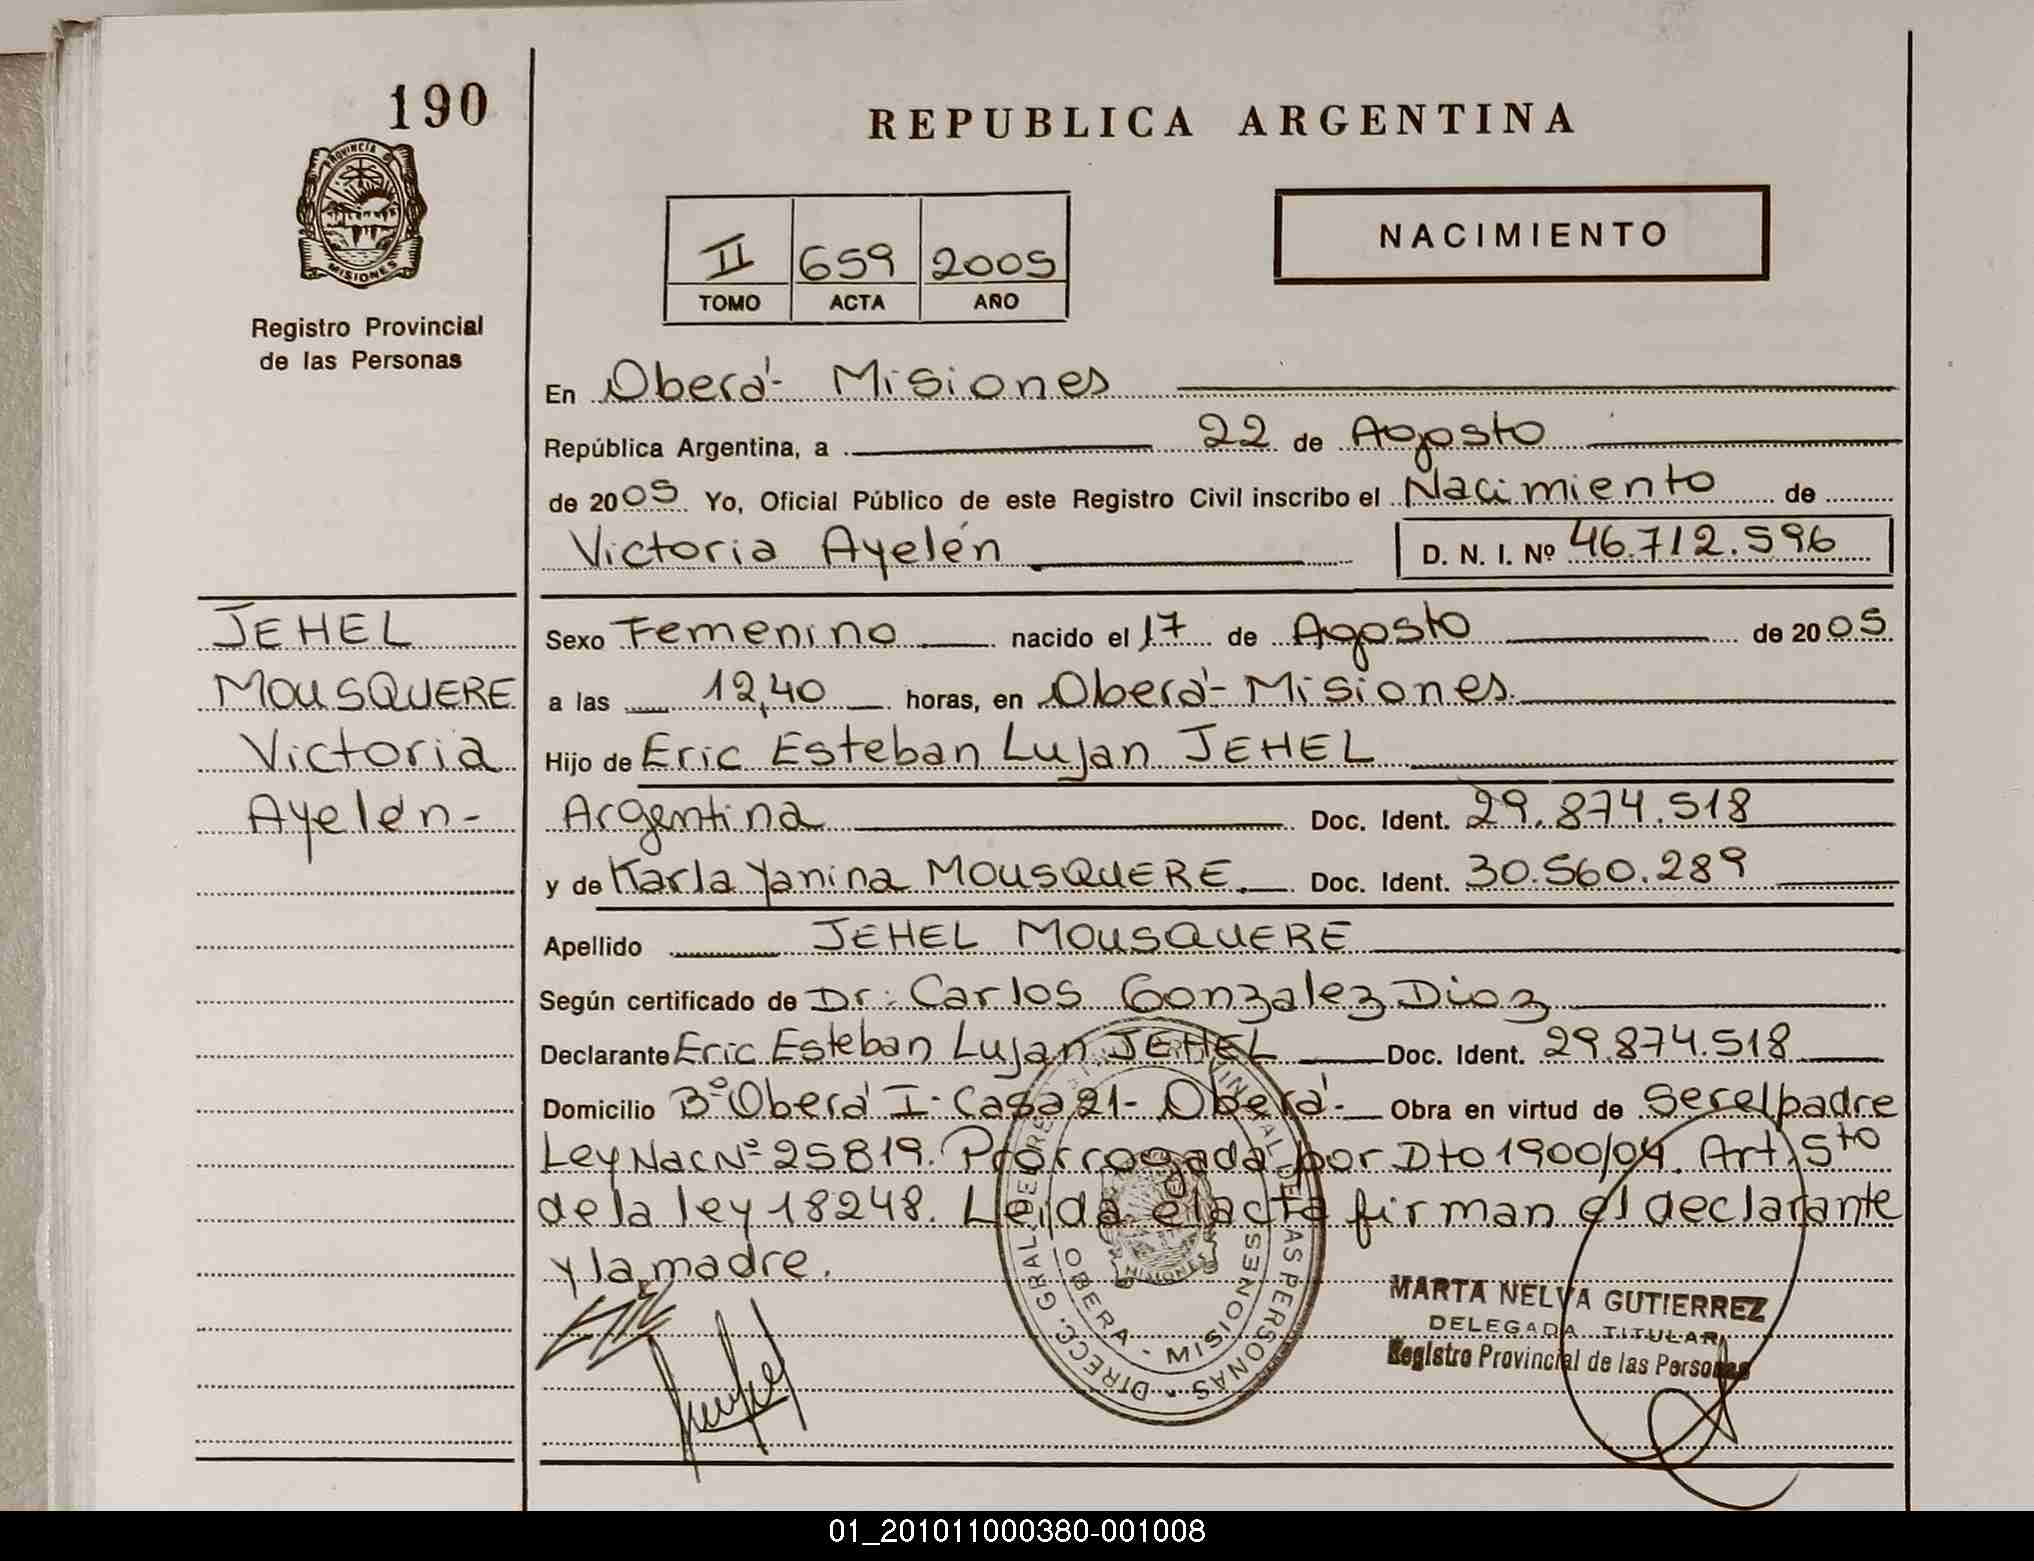 190
REPUBLICA ARGENTINA
PROVINCIA DE
MISIONES
Registro Provincial
de las Personas
II 659 2005
TOMO ACTA AÑO
NACIMIENTO
En Oberá - Misiones
República Argentina, a 22 de Agosto
de 2005 Yo, Oficial Público de este Registro Civil inscribo el Nacimiento de
Victoria Ayelén D. N. I. Nº 46.712.596
JEHEL
MOUSQUERE
Victoria
Ayelén -
Sexo Femenino nacido el 17 de Agosto de 2005
a las 12,40 horas, en Oberá - Misiones.
Hijo de Eric Esteban Lujan JEHEL
Argentina Doc. Ident. 29.874.518
y de Karla Yanina MOUSQUERE. Doc. Ident. 30.560.289
Apellido JEHEL MOUSQUERE
Según certificado de Dr: Carlos Gonzalez Dioz
Declarante Eric Esteban Lujan JEHEL Doc. Ident. 29.874.518
Domicilio Bº Oberá I - Casa 21 - Oberá - Obra en virtud de Ser el padre
Ley Nac Nº 25819. Prorrogada por Dto 1900/04. Art. 5to
de la ley 18248. Leida el acta firman el declarante
y la madre.
DIRECC. GRAL. DE REGISTRO PROVINCIAL DE LAS PERSONAS
OBERA - MISIONES
MISIONES
MARTA NELVA GUTIERREZ
DELEGADA TITULAR
Registro Provincial de las Personas
01_201011000380-001008